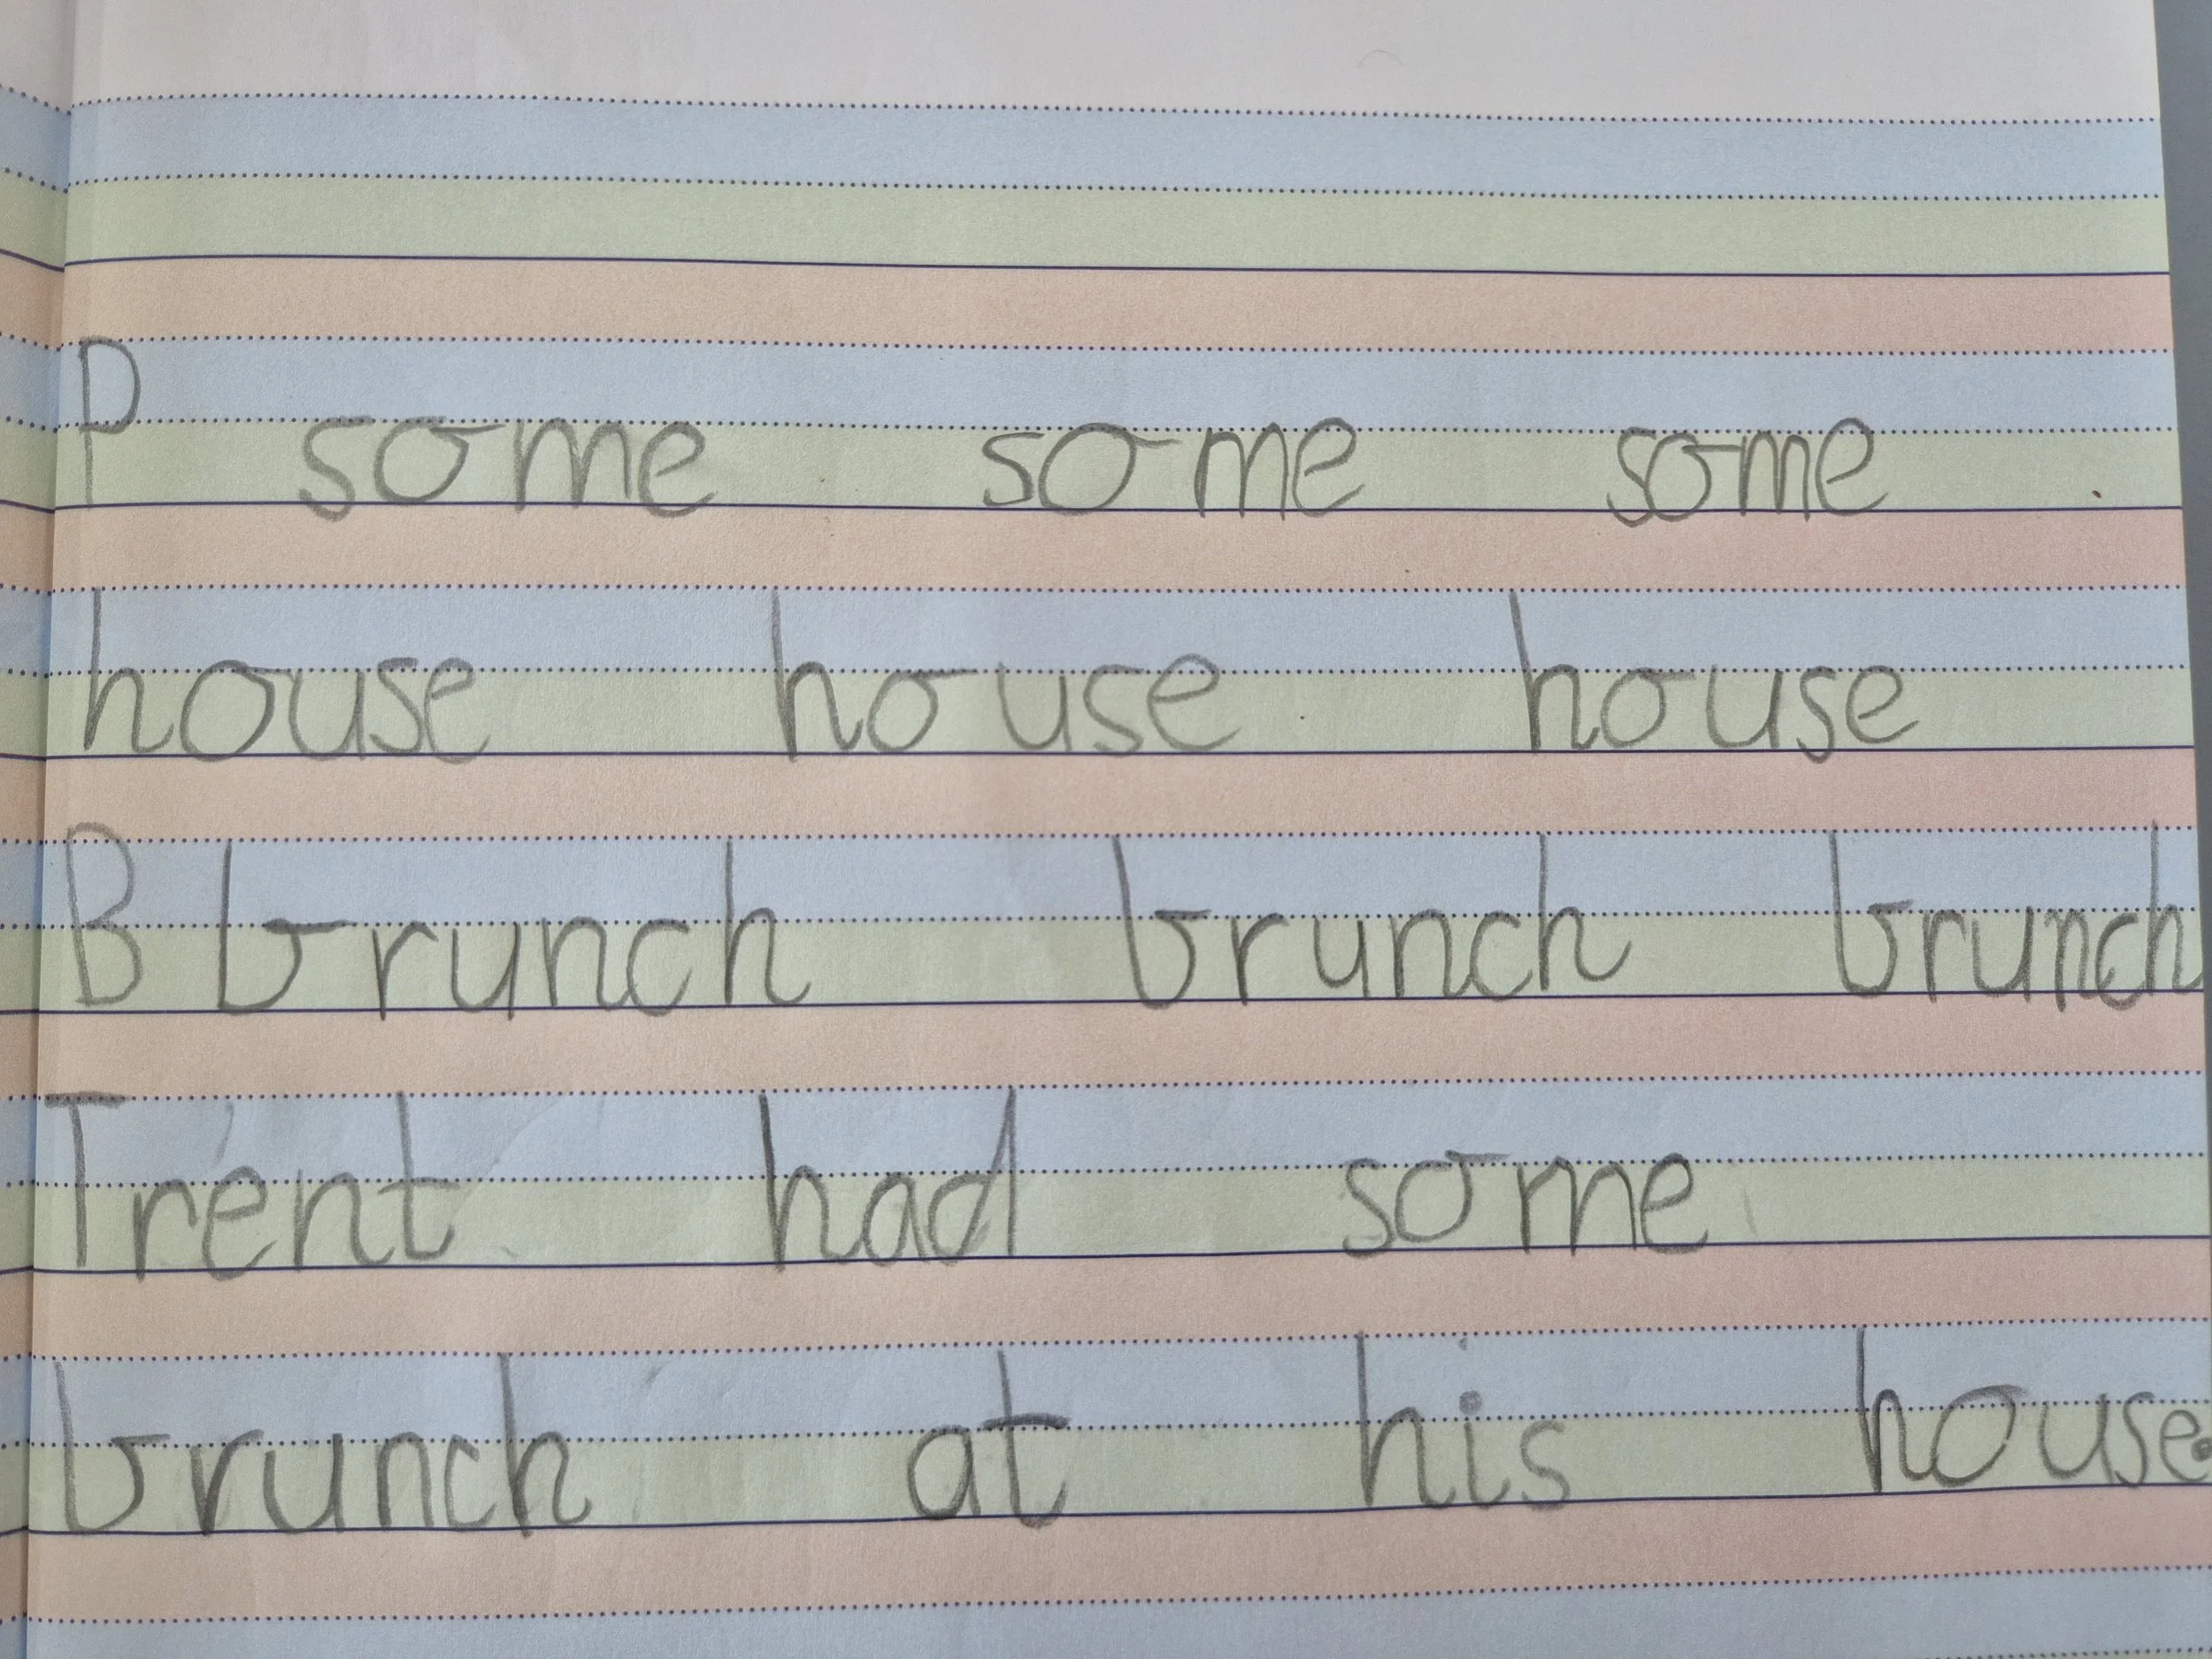 P some some some
house house house
B brunch brunch brunch
Trent had some
brunch at his house.